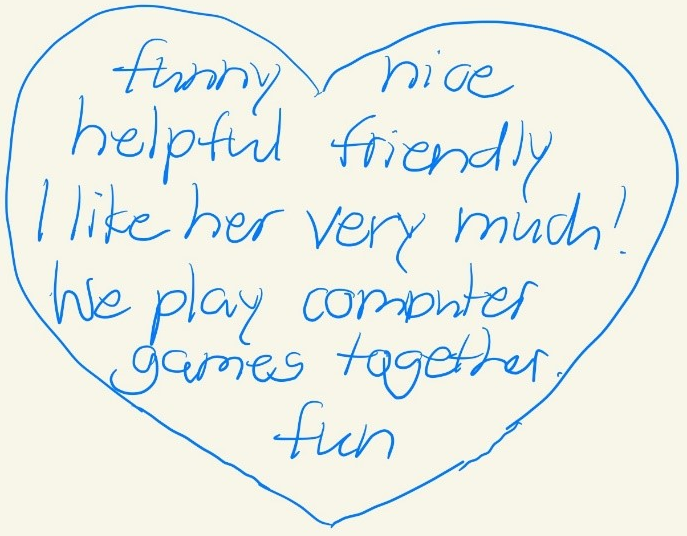 funny nice
helpful friendly
I like her very much!
We play computer
games together.
fun